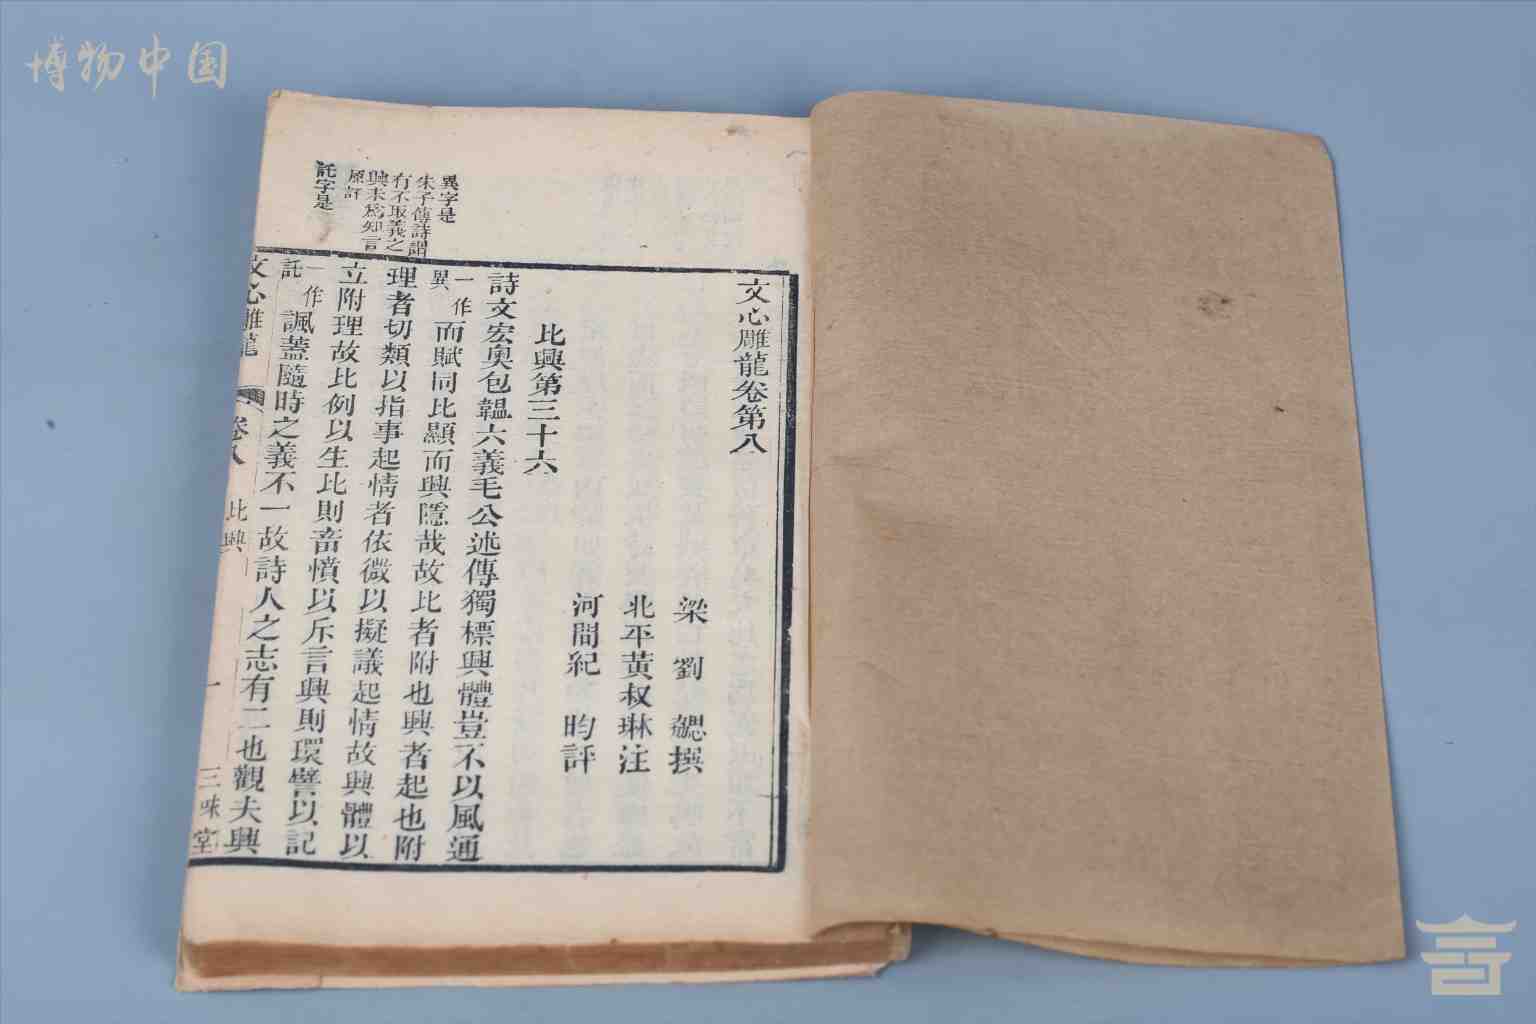 博物中国
文心雕龍卷第八
梁劉勰撰
北平黃叔琳注
河間紀昀評
比興第三十六
詩文宏奧包韞六義毛公述傳獨標興體豈不以風通
一作異而賦同比顯而興隱哉故比者附也興者起也附
理者切類以指事起情者依微以擬議起情故興體以
立附理故比例以生比則畜憤以斥言興則環譬以記
一作託諷蓋隨時之義不一故詩人之志有二也觀夫興
異字是
朱子傳詩謂
有不取義之
興未爲知言
原評
託字是
文心雕龍 卷八 比興 一 三味堂